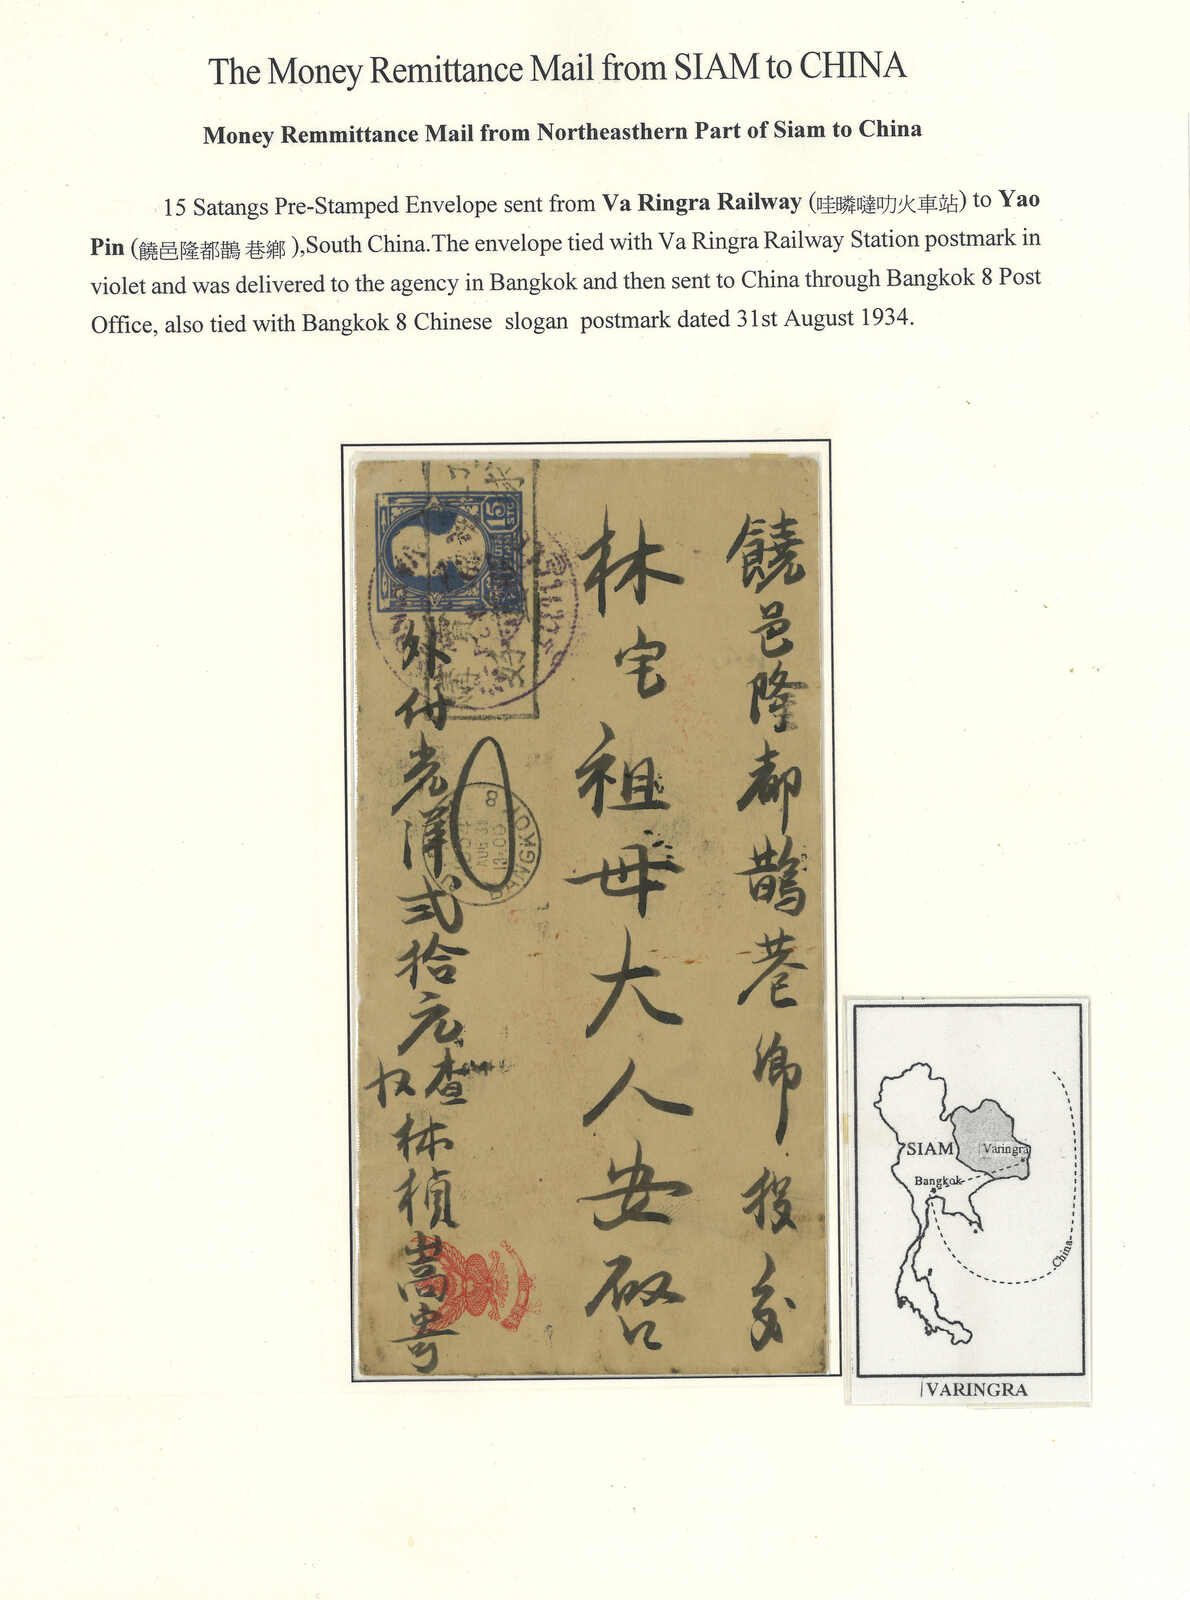 The Money Remittance Mail from SIAM to CHINA
Money Remmittance Mail from Northeasthern Part of Siam to China
15 Satangs Pre-Stamped Envelope sent from Va Ringra Railway (哇瞵噠叻火車站) to Yao
Pin (饒邑隆都鵲 巷鄉 ),South China.The envelope tied with Va Ringra Railway Station postmark in
violet and was delivered to the agency in Bangkok and then sent to China through Bangkok 8 Post
Office, also tied with Bangkok 8 Chinese slogan postmark dated 31st August 1934.
饒邑隆都鵲巷鄉投交
林宅祖母大人安啓
外付光洋弍拾元查收
林楨嵩寄
15
STG
8
BANGKOK
1934
AUG 31
13·00
SIAM
Varingra
Bangkok
China
VARINGRA